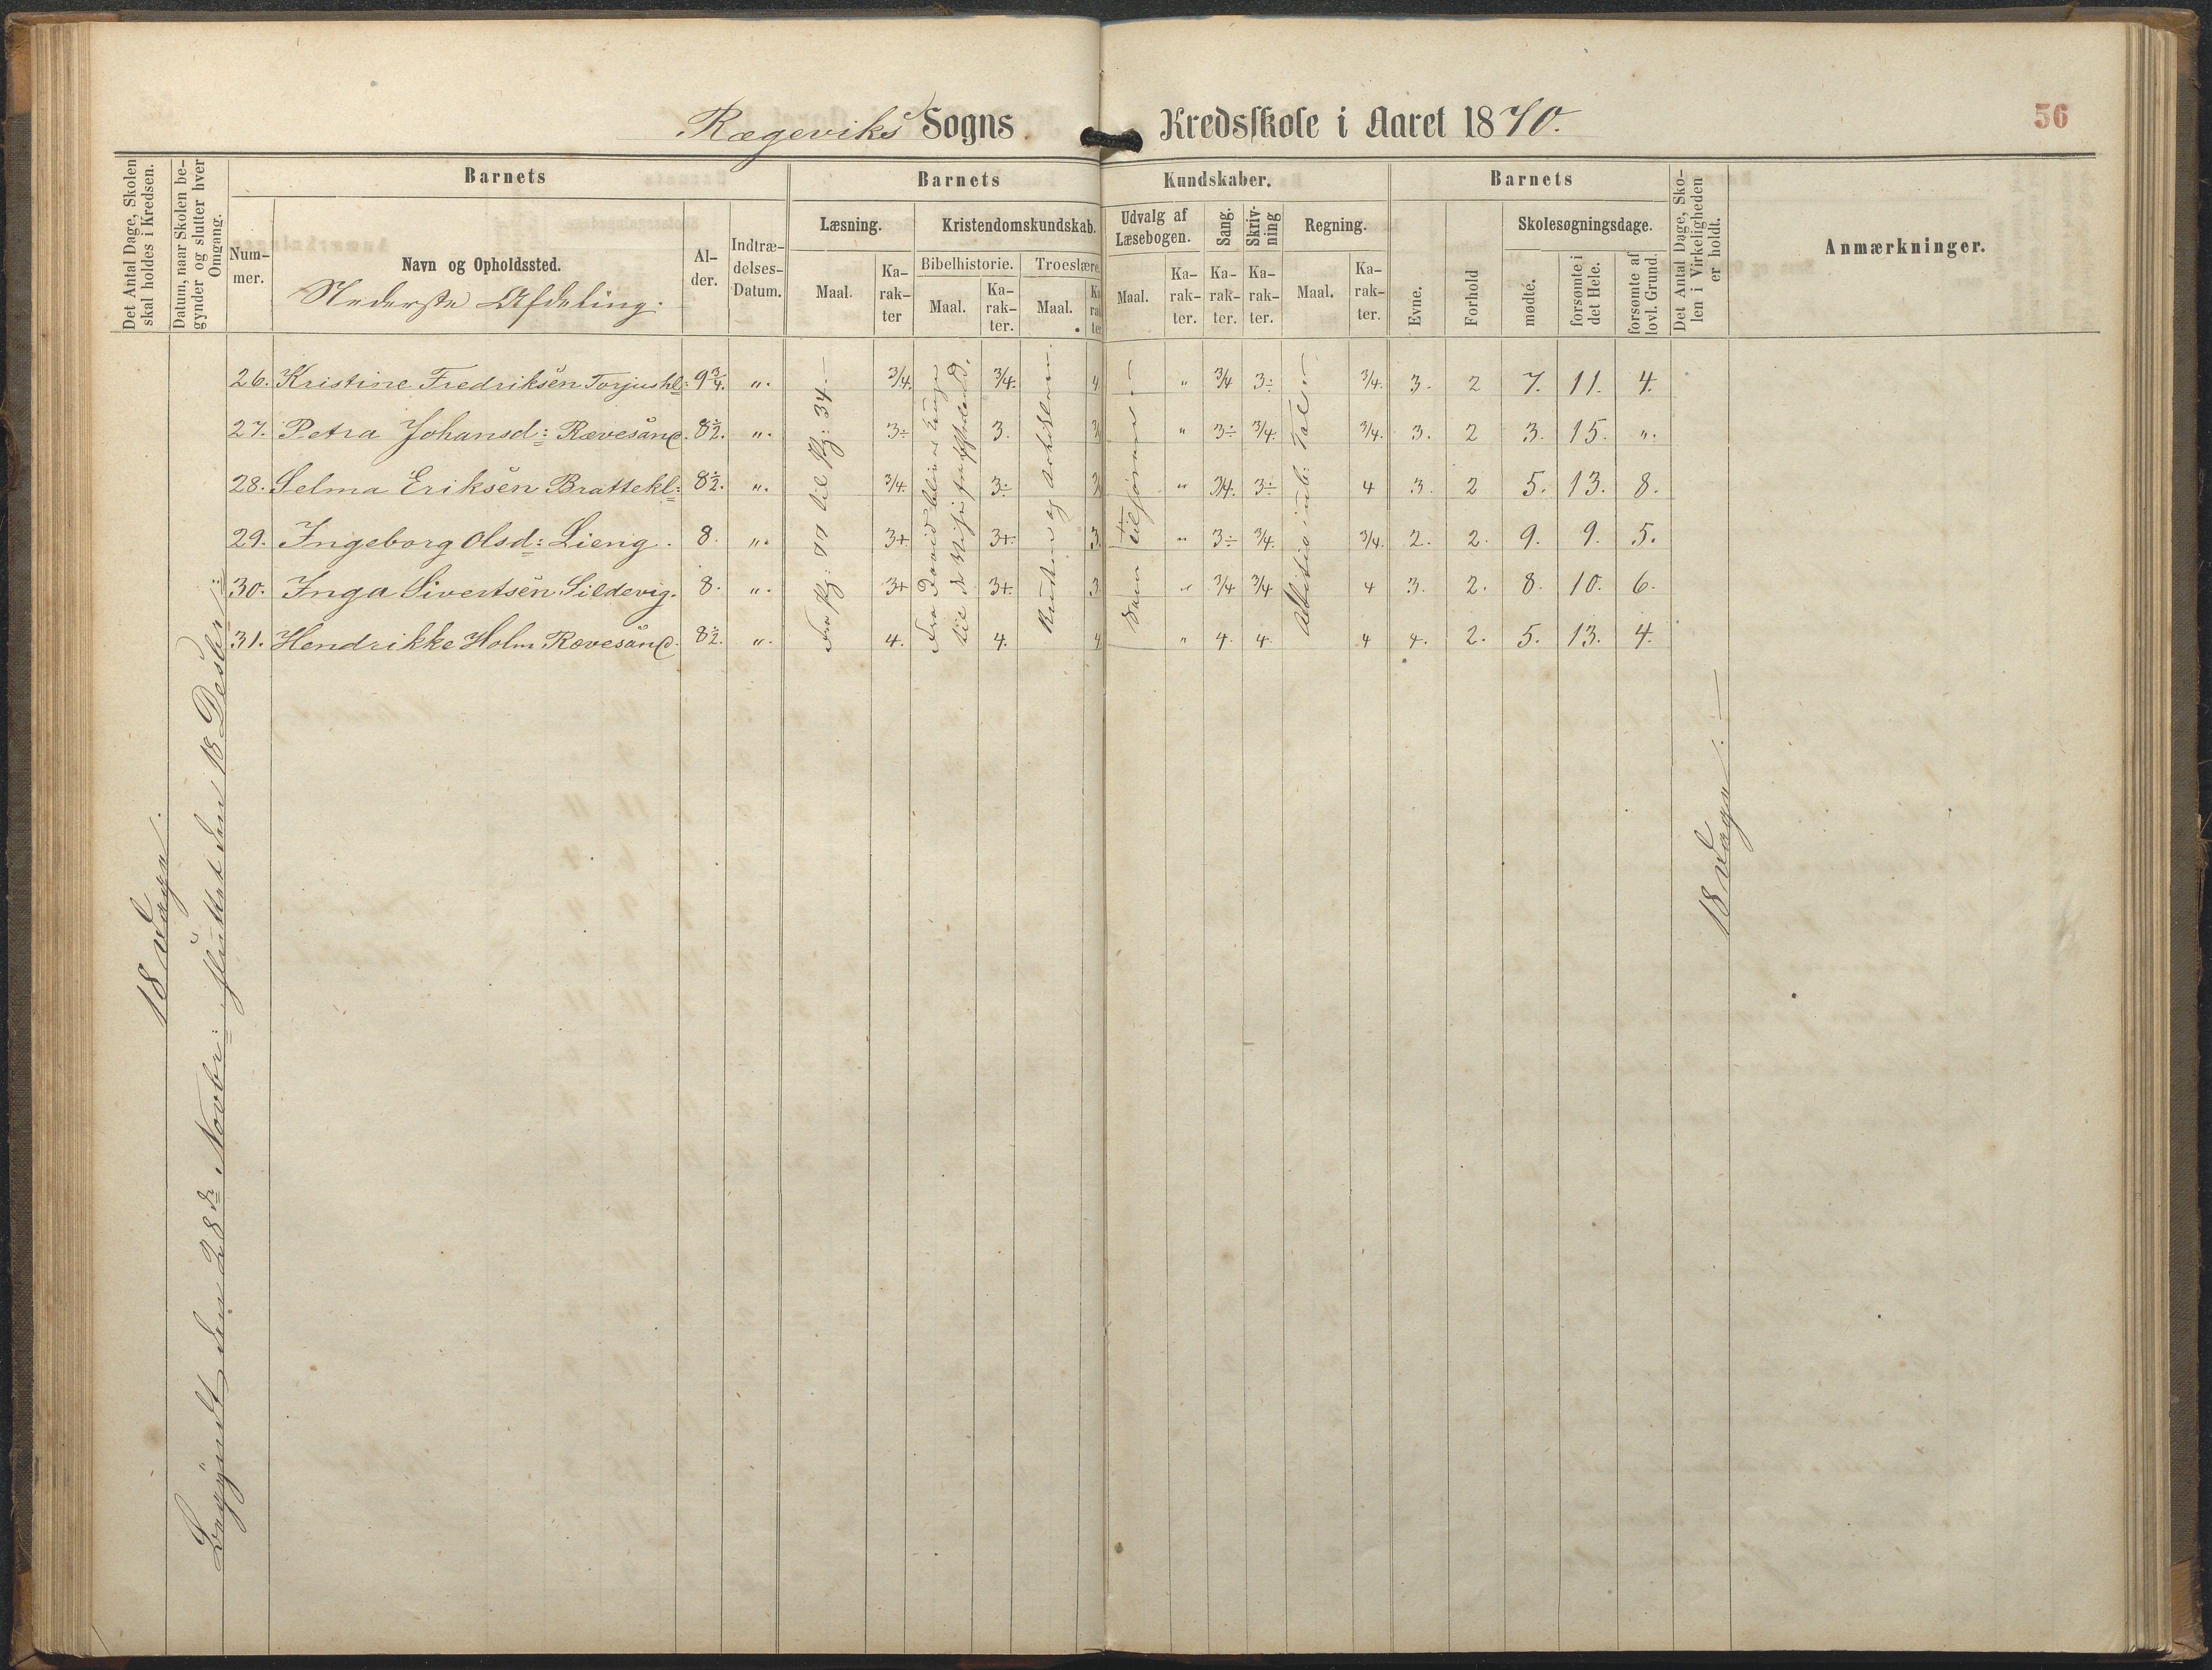 Rægeviks Sogns Kredsskole i Aaret 1870.
56
Det Antal Dage, Skolen skal holdes i Kredsen.
Datum, naar Skolen begynder og slutter hver Omgang.
Barnets
Nummer.
Navn og Opholdssted.
Nederste Afdeling.
Alder.
Indtrædelses-Datum.
Barnets Kundskaber.
Læsning.
Maal.
Karakter
Kristendomskundskab.
Bibelhistorie.
Maal.
Karakter.
Troeslære.
Maal.
Karakter.
Udvalg af Læsebogen.
Maal.
Karakter.
Sang.
Karakter.
Skrivning
Karakter.
Regning.
Maal.
Karakter.
Barnets
Evne.
Forhold
Skolesøgningsdage.
mødte.
forsømte i det Hele.
forsømte af lovl. Grund.
Det Antal Dage, Skolen i Virkeligheden er holdt.
Anmærkninger.
26. Kristine Fredriksen Torjushl: 9 3/4. ". 3/4. 3/4. 4 " 3/4 3÷ 3/4. 3. 2 7. 11. 4.
27. Petra Johansd: Rævesand. 8 1/2. ". 3÷ 3. " 3÷ 3/4. 3/4. 3. 2 3. 15. ".
28. Selma Eriksen Brattekl: 8 1/2. ". 3/4. 3÷ " 3/4. 3÷ 4 3. 2 5. 13. 8.
29. Ingeborg Olsd: Lieng. 8. ". 3+ 3+ 3. " 3÷ 3/4. 3/4. 2. 2. 9. 9. 5.
30. Inga Sivertsen Sildevig. 8. ". 3+ 3+ 3. " 3/4 3/4 4 3. 2. 8. 10. 6.
31. Hendrikke Holm Rævesand. 8 1/2. ". 4. 4. 4 " 4. 4. 4 4. 2. 5. 13. 4.
18 Dage.
Begyndt den 28de Novbr: sluttet den 18 Desbr:
Fra Pg: 11 til Pg: 34.
Fra David bliver Konge
til de
og
Som tilforn.
Tal
18 Dage.